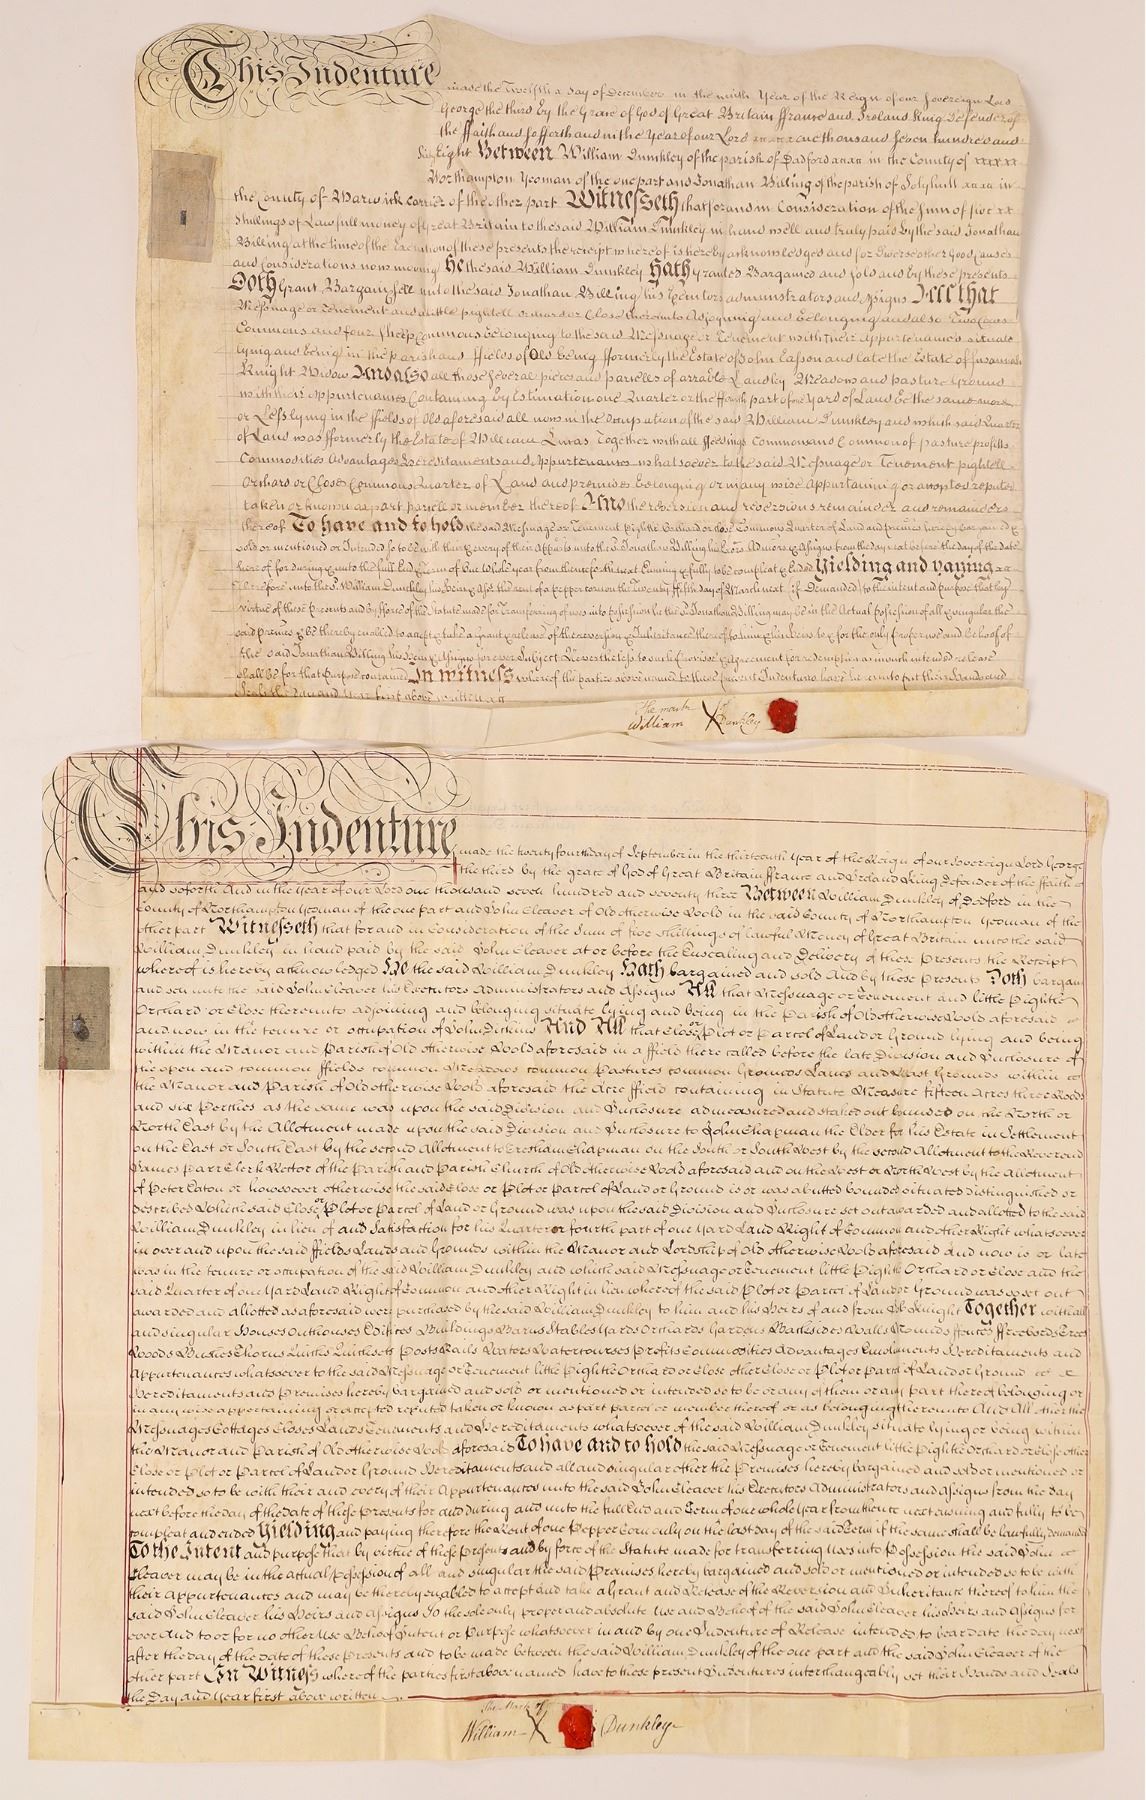 This Indenture
made the Twelfth day of December in the ninth Year of the Reign of our Sovereign Lord
George the third by the Grace of God of Great Britain ffrance and Ireland King Defender of
the ffaith and so fforth and in the Year of our Lord one thousand seven hundred and
Sixty Eight Between William Dunkley of the parish of Dadford in the County of
Northampton Yeoman of the one part and Jonathan Billing of the parish of Solyhull in
the County of Warwick Carrier of the other part Witnesseth that for and in Consideration of the Sum of five
Shillings of Lawfull money of Great Britain to the said William Dunkley in hand well and truly paid by the said Jonathan
Billing at the time of the Execution of these presents the receipt whereof is hereby acknowledged and for Divers other Good Causes
and Considerations now moving He the said William Dunkley Hath Granted Bargained and Sold and by these presents
Doth Grant Bargain Sell unto the said Jonathan Billing his Executors administrators and assigns All that
Messuage or Tenement and little pightell orchard or Close thereunto Adjoyning and Belonging and also Two Cows
Commons and four Sheep Commons Belonging to the said Messuage or Tenement with their Appurtenances situate
lying and being in the parish and ffields of Old being fformerly the Estate of John and late the Estate of Susannah
Knight Widow And also all those several pieces and parcells of arrable Land ley Meadow and pasture Ground
with their appurtenances Containing by Estimation one Quarter or the ffourth part of one Yard of Land be the same more
or Less lying in the ffields of Old aforesaid all now in the Occupation of the said William Dunkley and which said Quarter
of Land was fformerly the Estate of William Lucas Together with all ffeedings Commons and Common of pasture profitts
Commodities Advantages Hereditaments and Appurtenances whatsoever to the said Messuage or Tenement pightell
Orchard or Close Commons Quarter of Land and premises belonging or in any wise Appurtaining or accepted reputed
taken or known as part parcell or member thereof And the reversion and reversions remainder and remainders
thereof To have and to hold the said Messuage or Tenement Pightle Orchard or Close Commons Quarter of Land and premises hereby bargained &
sold or mentioned or Intended so to be with their & every of their Appurts unto the sd Jonathan Billing his Exors Admors & Assigns from the day next before the day of the date
hereof for during & unto the full End & Term of One Whole year from thence for the next Ensuing & fully to be compleat & Ended Yielding and paying
therefore unto the sd William Dunkley his Heirs & Ass the rent of a pepper corn on the Twenty fifth day of March next (if Demanded) to the intent and purpose that by
virtue of these Presents and by fforce of the Statute made for Transferring of uses into Possession he the sd Jonathan Billing may be in the Actual Possession of all & singular the
said premes & be thereby enabled to accept & take a Grant & release of the reversion & Inheritance thereof to him & his Heirs to & for the only proper use and behoof of
the said Jonathan Billing his Heirs & Assigns for ever Subject Nevertheless to such Proviso & Agreement for redemption as in such intended release
shall be for that Purpose contained In witness whereof the parties above named to these present Indentures have hereunto put their Hands and
Seals the Day and Year first above written
The mark of
William X Dunkley
This Indenture
made the twenty fourth day of September in the thirteenth Year of the Reign of our Sovereign Lord George
the third by the grace of God of Great Britain ffrance and Ireland King Defender of the ffaith
and soforth And in the Year of our Lord one thousand seven hundred and seventy three Between William Dunkley of Dodford in the
County of Northampton Yeoman of the one part and John Cleaver of Old otherwise Wold in the said County of Northampton Yeoman of the
other part Witnesseth that for and in Consideration of the Sum of five shillings of lawful Money of Great Britain unto the said
William Dunkley in hand paid by the said John Cleaver at or before the Ensealing and Delivery of these Presents the Receipt
whereof is hereby acknowledged He the said William Dunkley Hath bargained and sold And by these Presents Doth bargain
and sell unto the said John Cleaver his Executors Administrators and Assigns All that Messuage or Tenement and little Pightle
Orchard or Close thereunto adjoining and belonging situate lying and being in the Parish of Old otherwise Wold aforesaid
and now in the tenure or occupation of John Dickins And All that Close or Plot or Parcel of Land or Ground lying and being
within the Manor and Parish of Old otherwise Wold aforesaid in a ffield there called before the late Division and Inclosure of
the open and common ffields common Meadows common Pastures common Grounds Lanes and Wast Grounds within
the Manor and Parish of Old otherwise Wold aforesaid the Acre ffield containing in Statute Measure fifteen Acres three Roods
and six Perches as the same was upon the said Division and Inclosure admeasured and staked out bounded on the North or
North East by the Allotment made upon the said Division and Inclosure to John Chapman the Elder for his Estate in Settlement
on the East or South East by the second Allotment to Chapman on the South or South West by the second Allotment to the Reverend
James Parr Clerk Rector of the Parish and Parish Church of Old otherwise Wold aforesaid and on the West or North West by the Allotment
of Peter Eaton or howsoever otherwise the said Close or Plot or Parcel of Land or Ground is or was abutted bounded situated distinguished or
described Which said Close or Plot or Parcel of Land or Ground was upon the said Division and Inclosure set out awarded and allotted to the said
William Dunkley in lieu of and Satisfaction for his Quarter or fourth part of one Yard Land Right of Common and other Right whatsoever
in over and upon the said ffields Lands and Grounds within the Manor and Lordship of Old otherwise Wold aforesaid And now is or late
was in the tenure or occupation of the said William Dunkley and which said Messuage or Tenement little Pightle Orchard or Close and the
said Quarter of one Yard Land Right of Common and other Right in lieu whereof the said Plot or Parcel of Land or Ground was so set out
awarded and allotted as aforesaid were purchased by the said William Dunkley to him and his Heirs of and from Knight Together with all
and singular Houses Outhouses Edifices Buildings Barns Stables Yards Orchards Gardens Backsides Walls Mounds ffences Trees
Woods Bushes Thorns Quicks Quicksets Posts Rails Waters Watercourses Profits Commodities Advantages Emoluments Hereditaments and
Appurtenances whatsoever to the said Messuage or Tenement little Pightle Orchard or Close other Close or Plot or Parcel of Land or Ground
Hereditaments and Premises hereby bargained and sold or mentioned or intended so to be or any of them or any part thereof belonging or
in any wise appertaining or accepted reputed taken or known as part parcel or member thereof or as belonging thereunto And All other the
Messuages Cottages Closes Lands Tenements and Hereditaments whatsoever of the said William Dunkley situate lying or being within
the Manor and Parish of Old otherwise Wold aforesaid To have and to hold the said Messuage or Tenement little Pightle Orchard or Close other
Close or Plot or Parcel of Land or Ground Hereditaments and all and singular other the Premises hereby bargained and sold or mentioned or
intended so to be with their and every of their Appurtenances unto the said John Cleaver his Executors Administrators and Assigns from the day
next before the day of the date of these Presents for and during and unto the full End and Term of one whole year from thence next ensuing and fully to be
compleat and ended Yielding and paying therefore the Rent of one Pepper Corn only on the last day of the said Term if the same shall be lawfully demanded
To the Intent and purpose that by virtue of these Presents and by force of the Statute made for transferring Uses into Possession the said John
Cleaver may be in the actual Possession of all and singular the said Premises hereby bargained and sold or mentioned or intended so to be with
their Appurtenances and may be thereby enabled to accept and take a Grant and Release of the Reversion and Inheritance thereof to him the
said John Cleaver his Heirs and Assigns To the sole only proper and absolute Use and Behoof of the said John Cleaver his Heirs and Assigns for
ever And to or for no other Use Behoof Intent or Purpose whatsoever in and by one Indenture of Release intended to bear date the day next
after the day of the date of these Presents and to be made between the said William Dunkley of the one part and the said John Cleaver of the
other part In Witness whereof the parties first above named have to these present Indentures interchangeably set their Hands and Seals
the Day and Year first above written
The Mark of
William X Dunkley